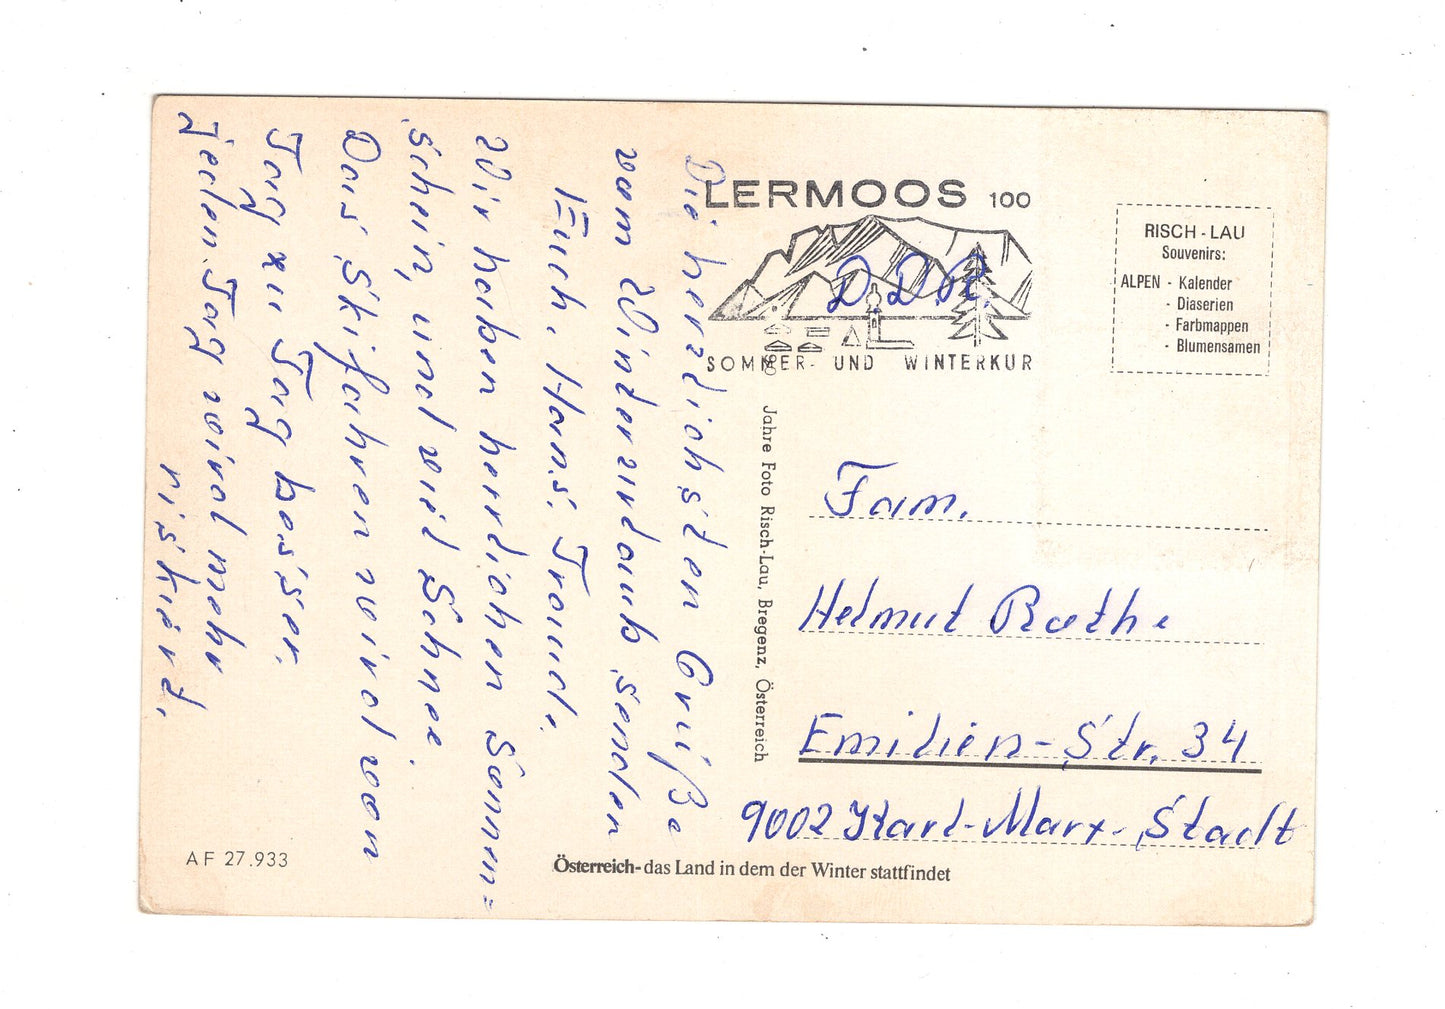 Die herzlichsten Grüße
vom Winterurlaub senden
Euch, Hans, Traudl.
Wir haben herrlichen Sonnen=
schein, und viel Schnee
Das Skifahren wird von
Tag zu Tag besser.
Jeden Tag wird mehr
riskiert.
LERMOOS 100
D.D.R.
SOMMER- UND WINTERKUR
RISCH - LAU
Souvenirs:
ALPEN - Kalender
- Diaserien
- Farbmappen
- Blumensamen
60 Jahre Foto Risch-Lau, Bregenz, Österreich
Fam.
Helmut Rothe
Emilien-Str. 34
9002 Karl-Marx-Stadt
AF 27.933
Österreich-das Land in dem der Winter stattfindet